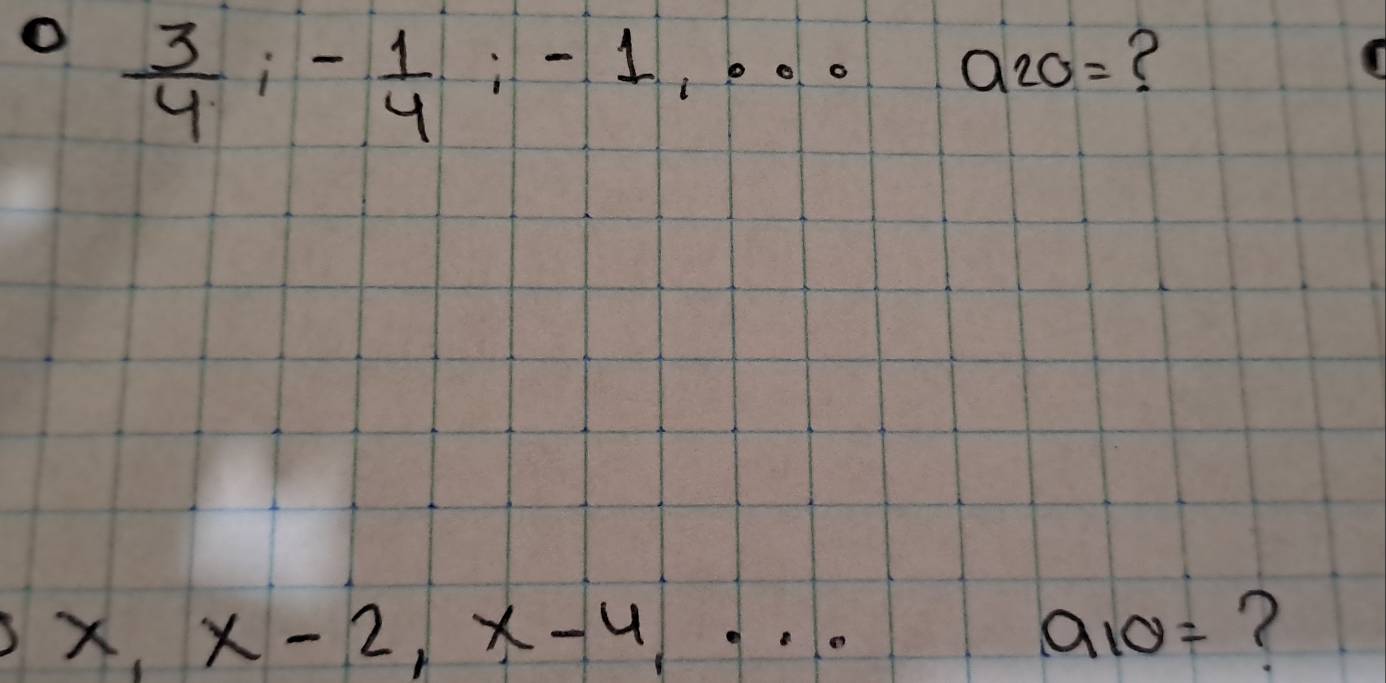 3/4 ; - 1/4 ; - 1, ... a20 = ?
x, x - 2, x - 4, ... a10 = ?